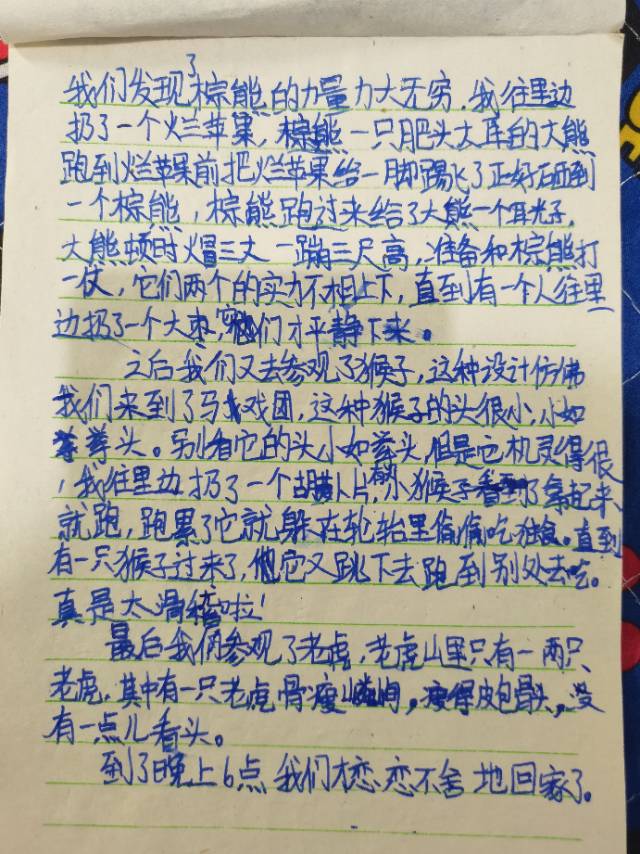 我们发现了棕熊的力量力大无穷。我往里边
扔了一个烂苹果，棕熊一只肥头大耳的大熊
跑到烂苹果前把烂苹果给一脚踢飞了正好砸到
一个棕熊，棕熊跑过来给了大熊一个耳光子。
大熊顿时火冒三丈一蹦三尺高，准备和棕熊打
一仗，它们两个的实力不相上下，直到有一个人往里
边扔了一个大枣，它们才平静下来。
之后我们又去参观了猴子，这种设计仿佛
我们来到了马戏团，这种猴子的头很小，小如
拳头。别看它的头小如拳头，但是它机灵得很
，我往里边扔了一个胡萝卜片，有的小猴子看到了拿起来
就跑，跑累了它就躲在轮胎里偷偷吃独食。直到
有一只猴子过来了，它又跳下去跑到别处去吃。
真是太滑稽啦！
最后我们参观了老虎，老虎山里只有一两只
老虎，其中有一只老虎骨瘦嶙峋，瘦得皮包骨头，没
有一点儿看头。
到了晚上6点我们才恋恋不舍地回家了。